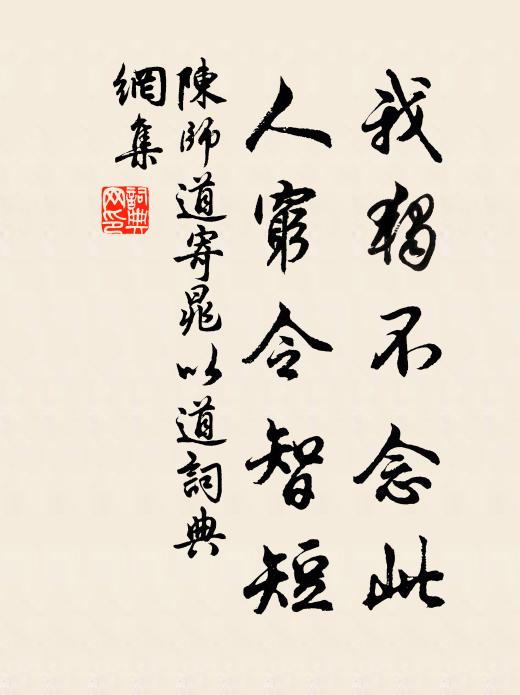 我獨不念此
人窮令智短
陳師道寄晁以道詞典
網集
詞典網印